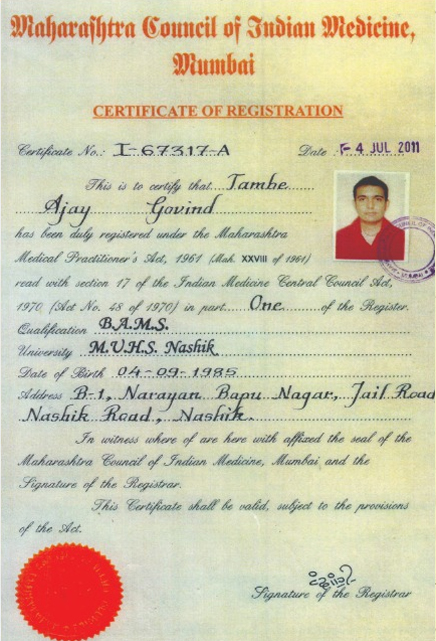 Maharashtra Council of Indian Medicine,
Mumbai
CERTIFICATE OF REGISTRATION
Certificate No.: I-67317-A Date 4 JUL 2011
This is to certify that Tambe
Ajay Govind
has been duly registered under the Maharashtra
Medical Practitioner's Act, 1961 (Mah. XXVIII of 1961)
read with section 17 of the Indian Medicine Central Council Act,
1970 (Act No. 48 of 1970) in part One of the Register.
Qualification B.A.M.S.
University M.U.H.S. Nashik
Date of Birth 04-09-1985
Address B-1, Narayan Bapu Nagar, Jail Road
Nashik Road, Nashik.
In witness where of are here with affixed the seal of the
Maharashtra Council of Indian Medicine, Mumbai and the
Signature of the Registrar.
This Certificate shall be valid, subject to the provisions
of the Act.
Signature of the Registrar